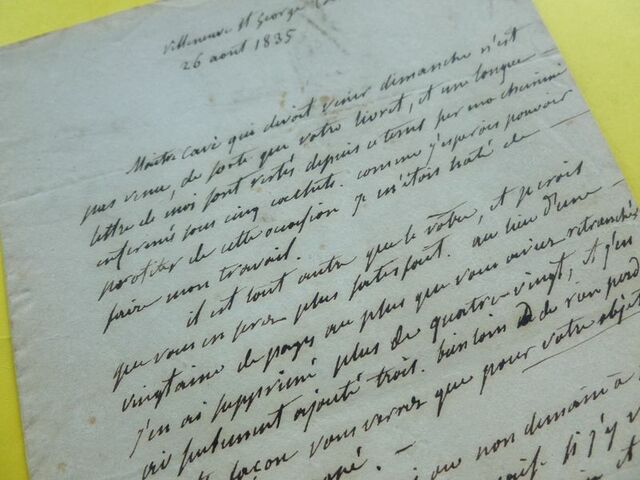 Villeneuve St George
26 aout 1835
Maitre Cavé qui devoit venir dimanche n'est
pas venu, de sorte que votre livret, et une longue
lettre de moi sont restés depuis ce tems sur ma cheminée
enfermés sous cinq cachets. comme j'esperois pouvoir
profiter de cette occasion je m'étois hâté de
faire mon travail.
il est tout autre que le vôtre, et je crois
que vous en serez plus satisfait. au lieu d'une
vingtaine de pages au plus que vous aviez retranchées
j'en ai supprimé plus de quatre-vingt, et j'en
ai seulement ajouté trois. bien loin de rien
façon vous verrez que pour votre objet
ou non demain à
s'il y